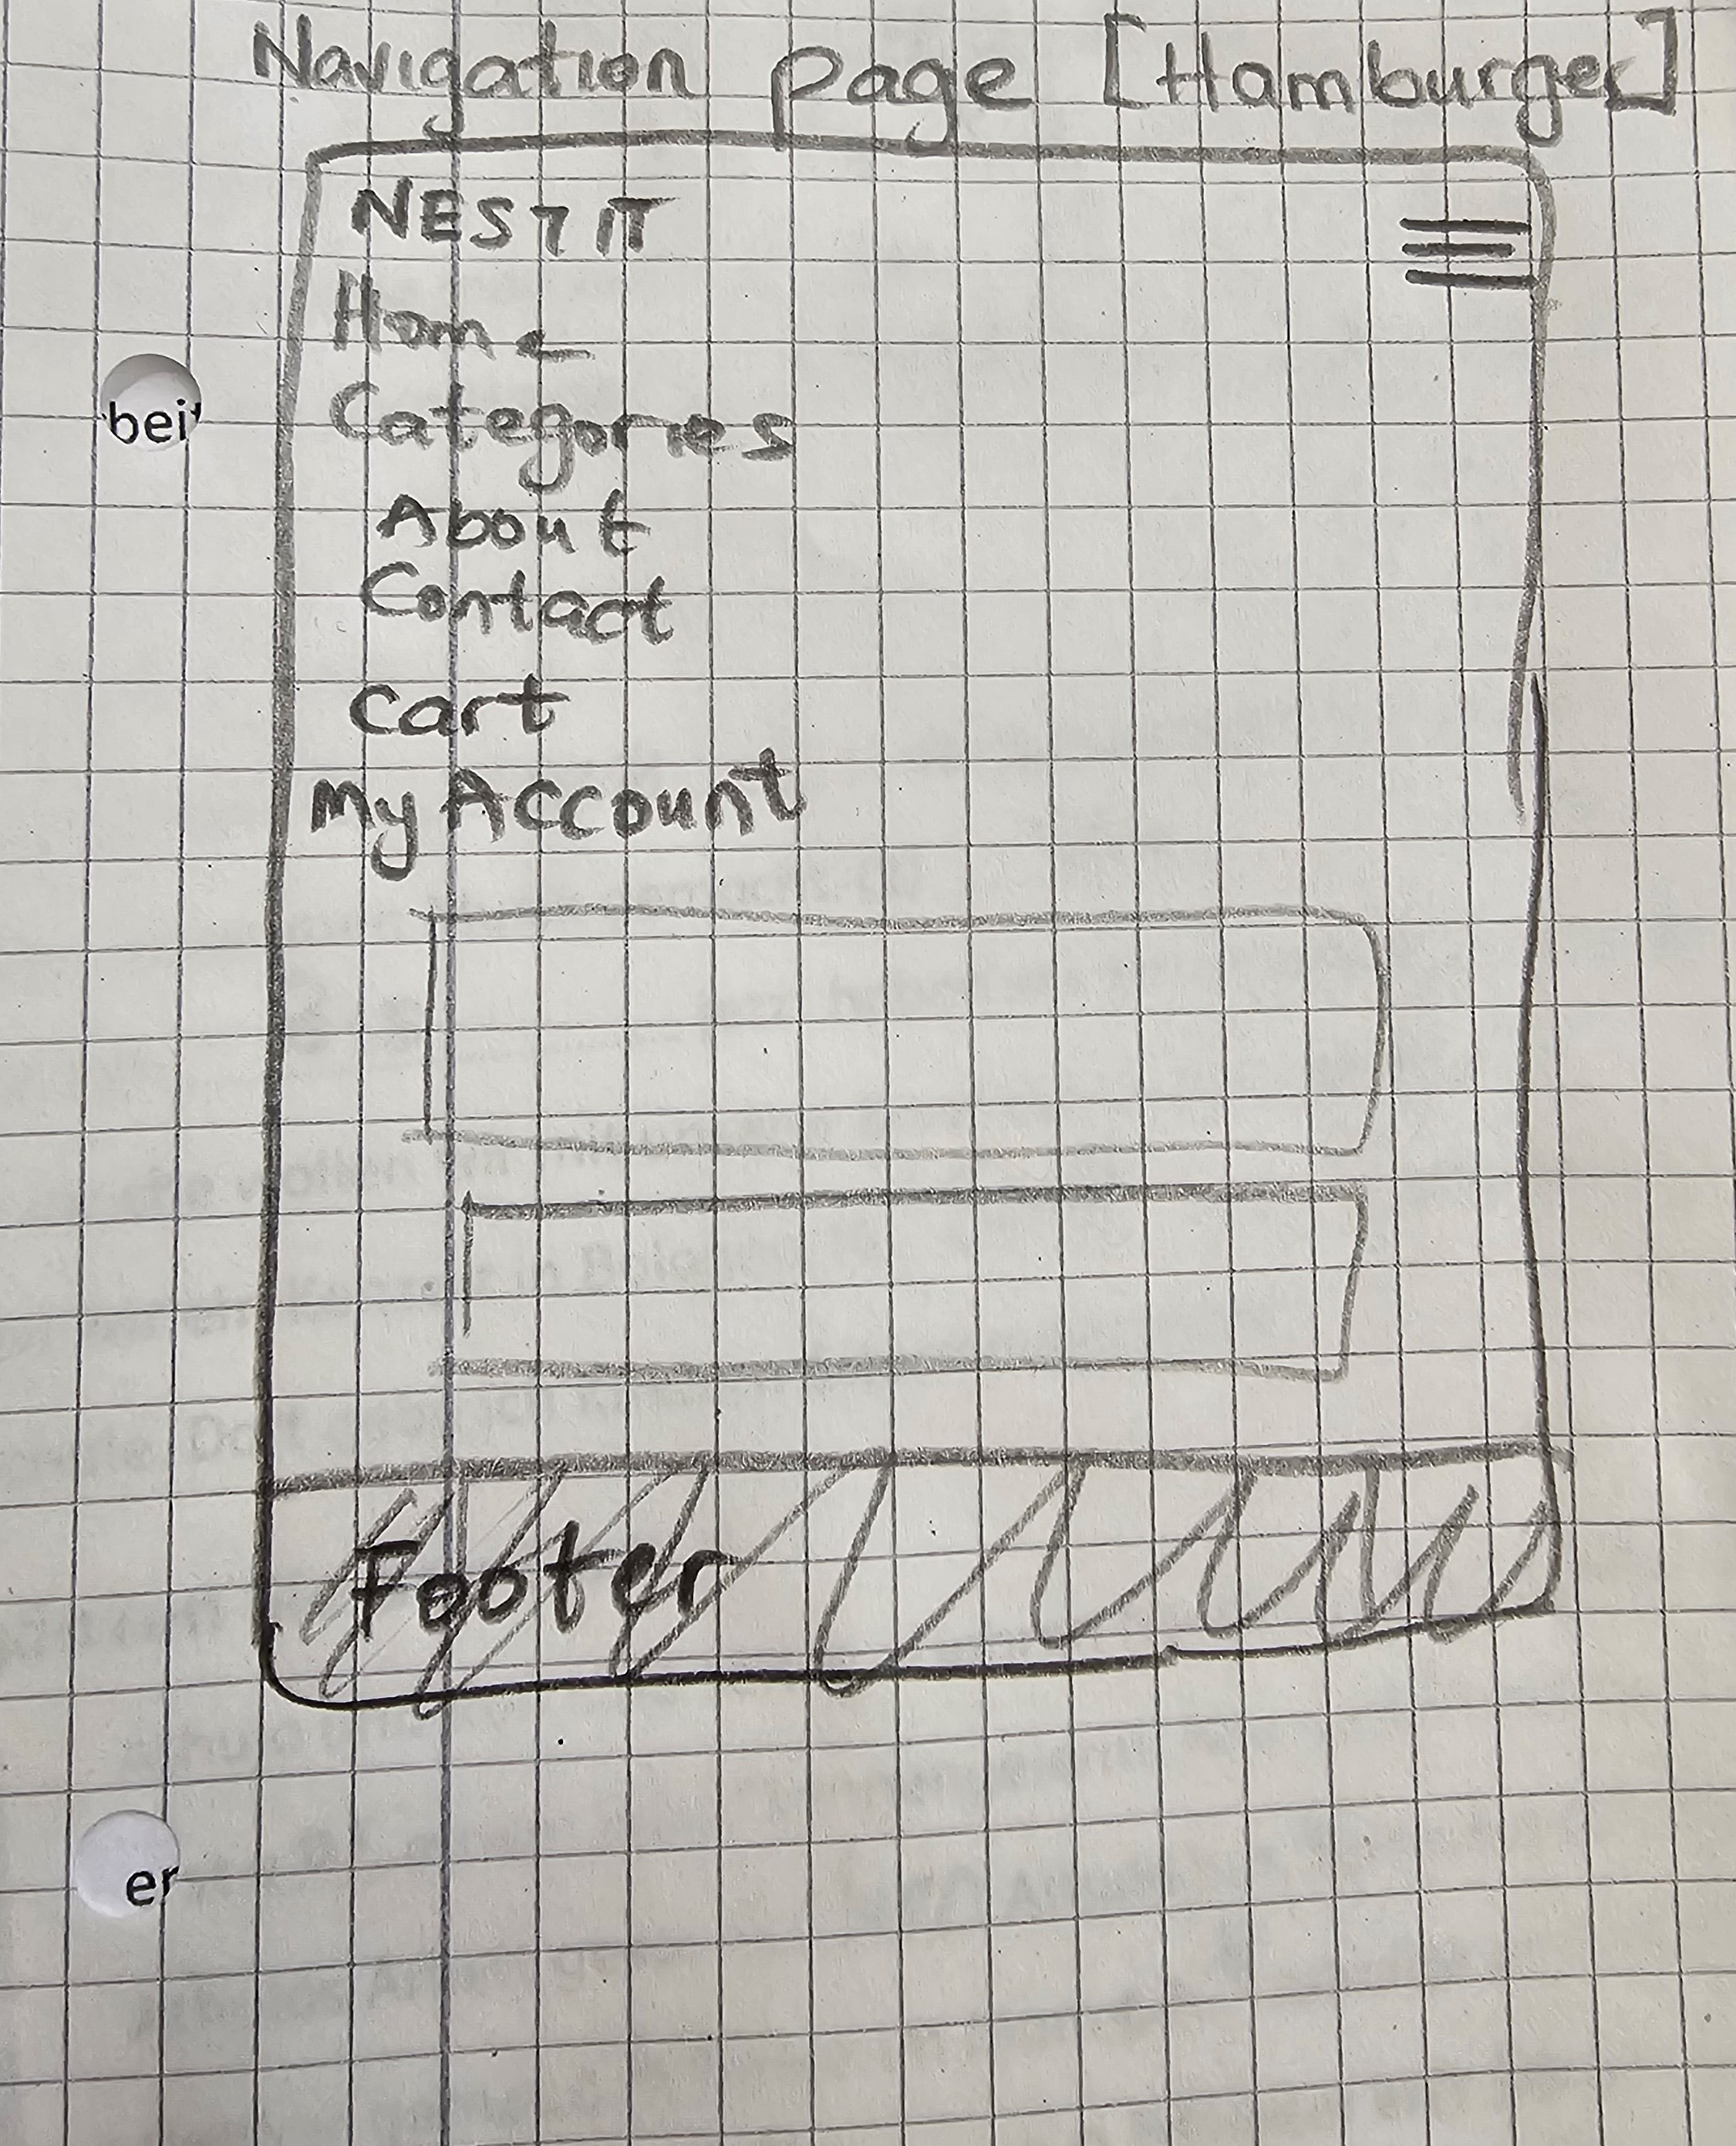 Navigation page [Hamburger]
NEST IT
Home
Categories
About
Contact
Cart
My Account
Footer
bei
er